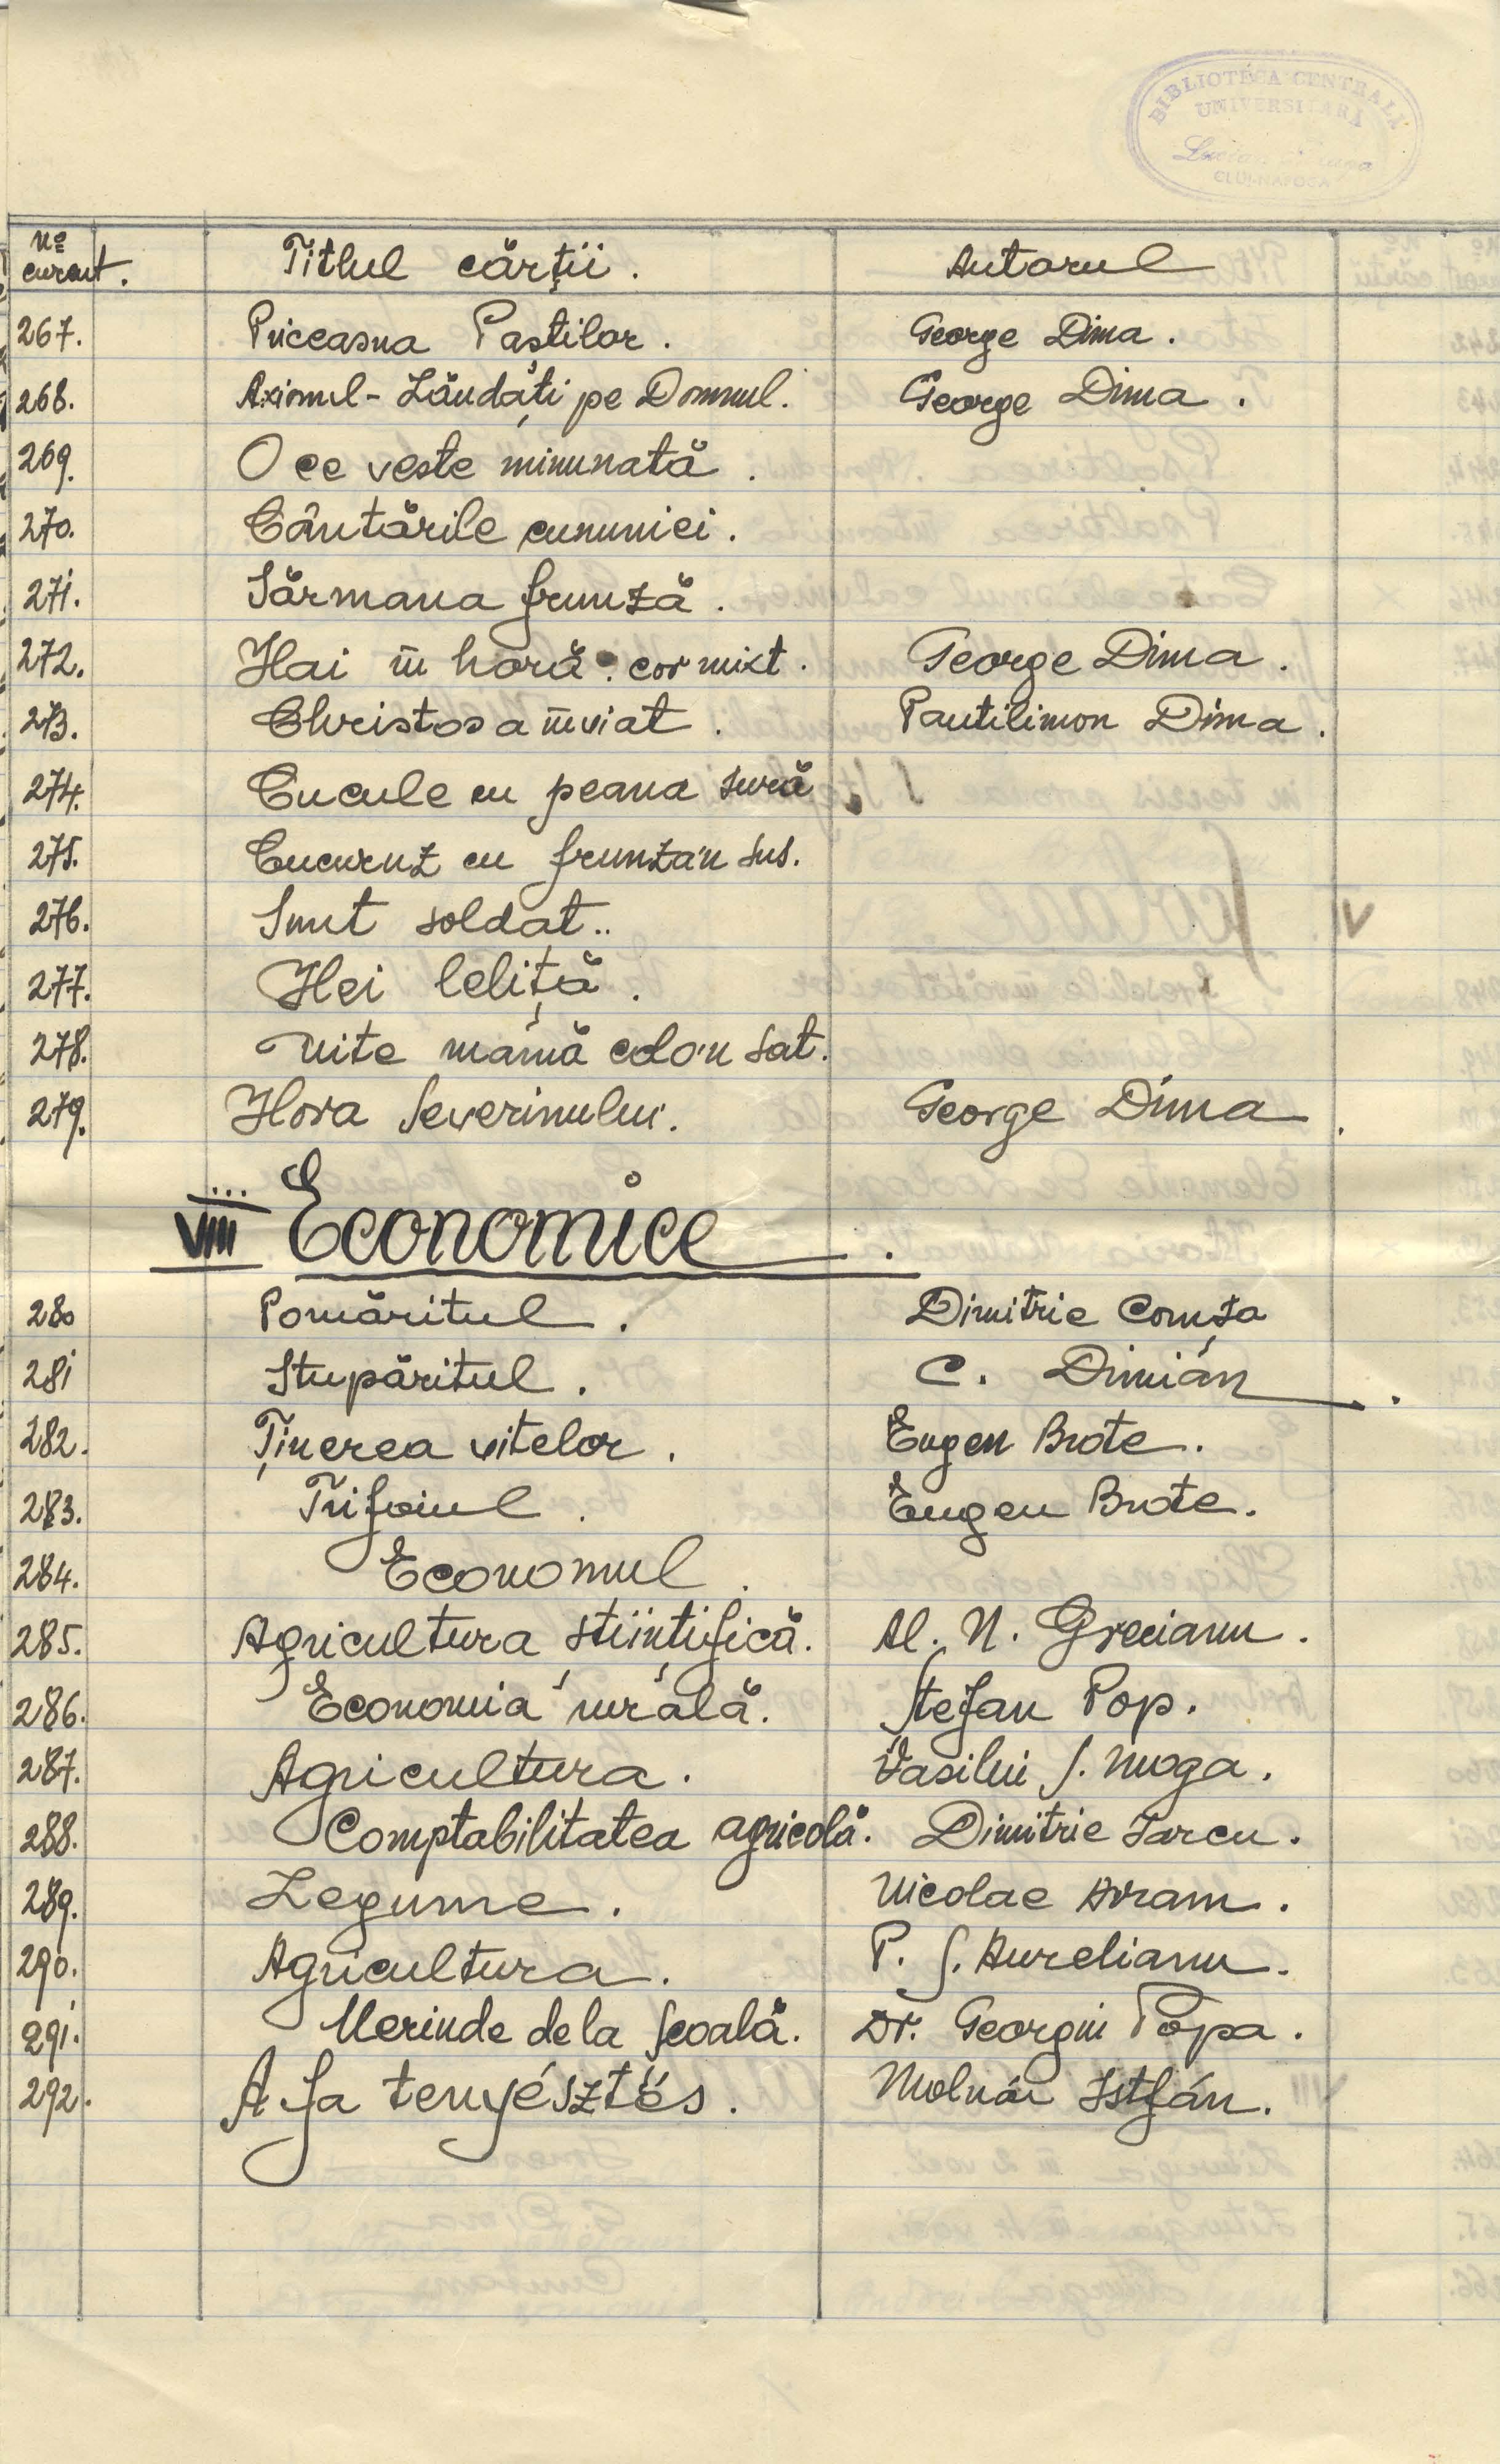 BIBLIOTECA CENTRALĂ
UNIVERSITARĂ
CLUJ-NAPOCA
No curent. Titlul cărții. Autorul
267. Priceasna Paștilor. George Dima.
268. Axionul - Lăudați pe Domnul. George Dima.
269. O ce veste minunată.
270. Cântările cununiei.
271. Sărmana frunză.
272. Hai în horă. cor mixt. George Dima.
273. Christos a înviat. Pantilimon Dima.
274. Cucule cu peana sură.
275. Cucuruz cu frunza'n sus.
276. Sunt soldat..
277. Hei leliță.
278. Uite mamă colo'n sat.
279. Hora Severinului. George Dima.
VIII Economice.
280 Pomăritul. Dimitrie Comșa
281 Stupăritul. C. Dimián.
282. Ținerea vitelor. Eugen Brote.
283. Trifoiul. Eugen Brote.
284. Economul.
285. Agricultura științifică. Al. N. Grecianu.
286. Economia rurală. Ștefan Pop.
287. Agricultura. Vasilui S. Moga.
288. Comptabilitatea agricolă. Dimitrie Iarcu.
289. Legume. Nicolae Avram.
290. Agricultura. P. S. Aurelianu.
291. Merinde de la școală. Dr. Georgiu Popa.
292. A fa tenyésztés. Molnár István.